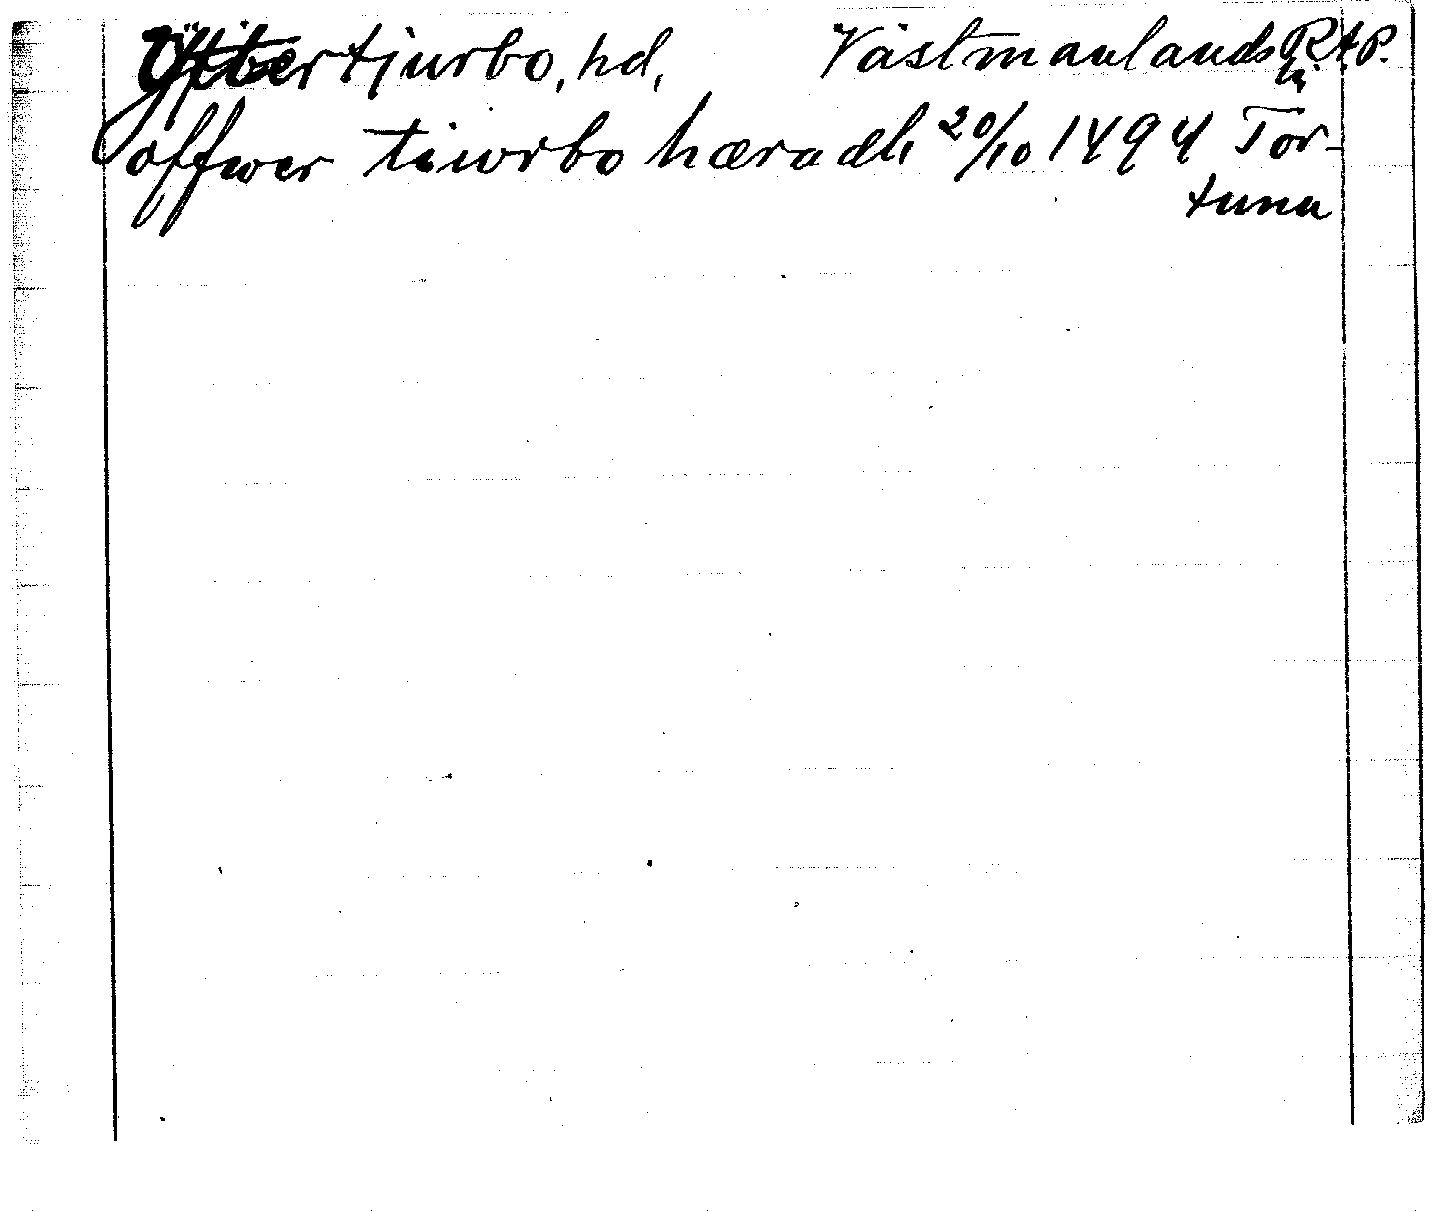 Övertjurbo, hd, Västmanlands RAP.
offwer tiwrbo hæradh 20/10 1494 Tor-
tuna